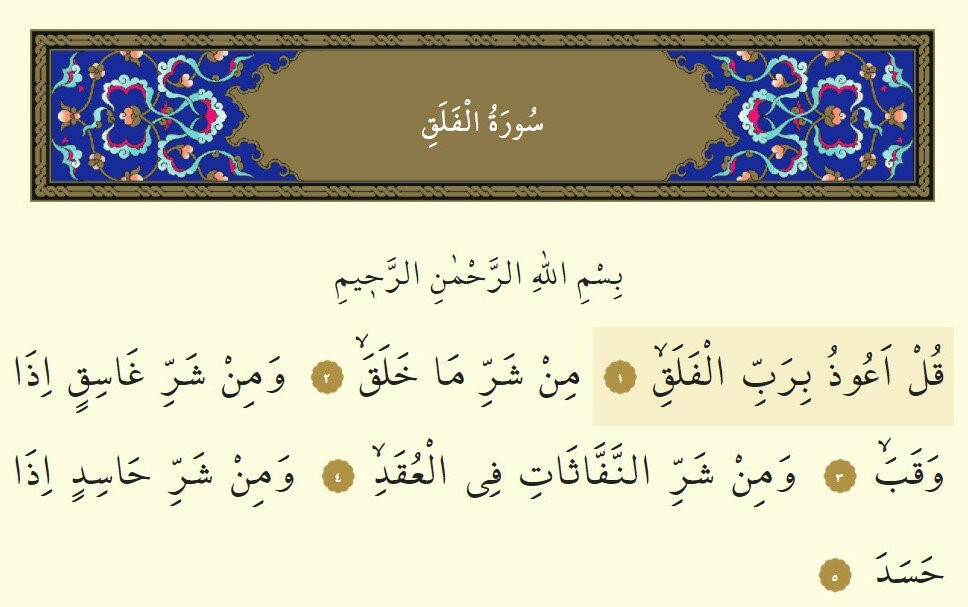 سُورَةُ الْفَلَقِ
بِسْمِ اللهِ الرَّحْمٰنِ الرَّحٖيمِ
قُلْ اَعُوذُ بِرَبِّ الْفَلَقِۙ ١ مِنْ شَرِّ مَا خَلَقَۙ ٢ وَمِنْ شَرِّ غَاسِقٍ اِذَا
وَقَبَۙ ٣ وَمِنْ شَرِّ النَّفَّاثَاتِ فِى الْعُقَدِۙ ٤ وَمِنْ شَرِّ حَاسِدٍ اِذَا
حَسَدَ ٥